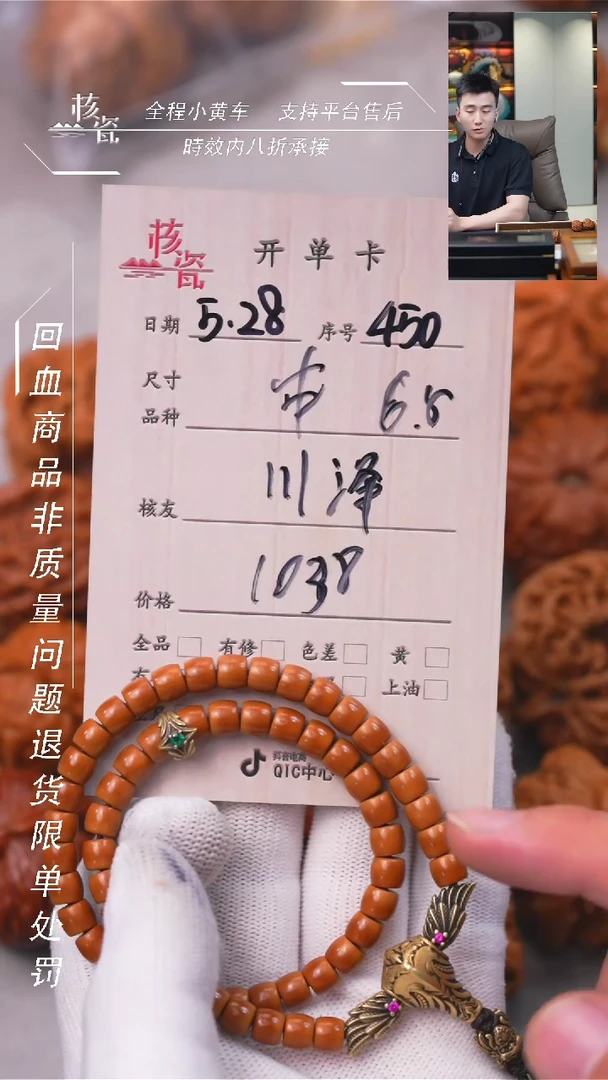 核瓷
全程小黄车 支持平台售后
時效内八折承接
回血商品非质量问题退货限单处罚
核瓷
开单卡
日期 5.28 序号 450
尺寸
品种 市 6.8
核友 川泽
价格 1038
全品 有修 色差 黄
上油
抖音电商
QIC中心